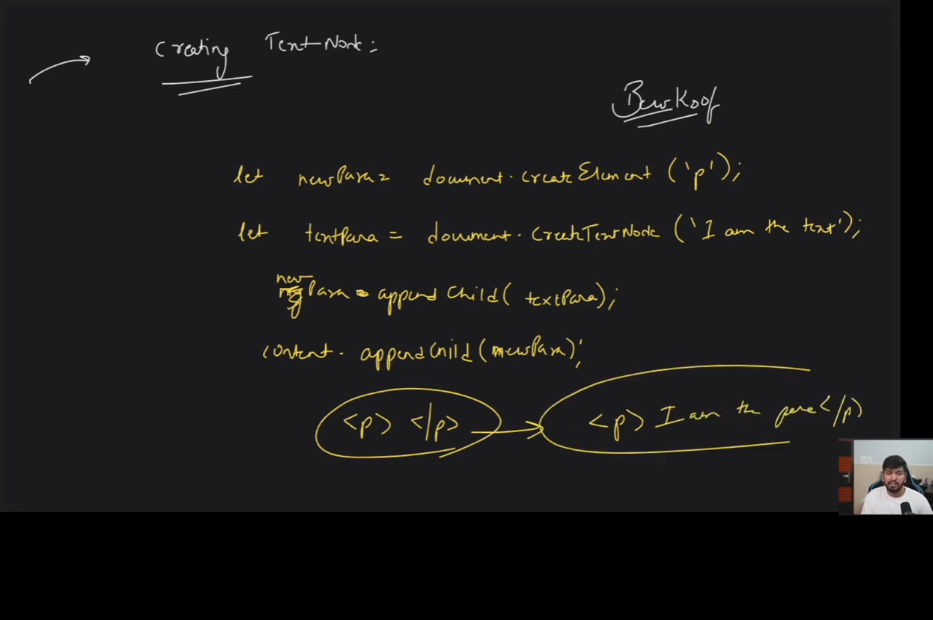 Creating Text Node:
BewKoof
let newPara = document.createElement('p');
let textPara = document.createTextNode('I am the text');
newPara.appendChild(textPara);
content.appendChild(newPara);
<p> </p> → <p> I am the para</p>